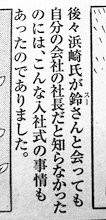 後々浜崎氏が鈴さんと会っても
スー
自分の会社の社長だと知らなかった
のには、こんな入社式の事情も
あったのでありました。